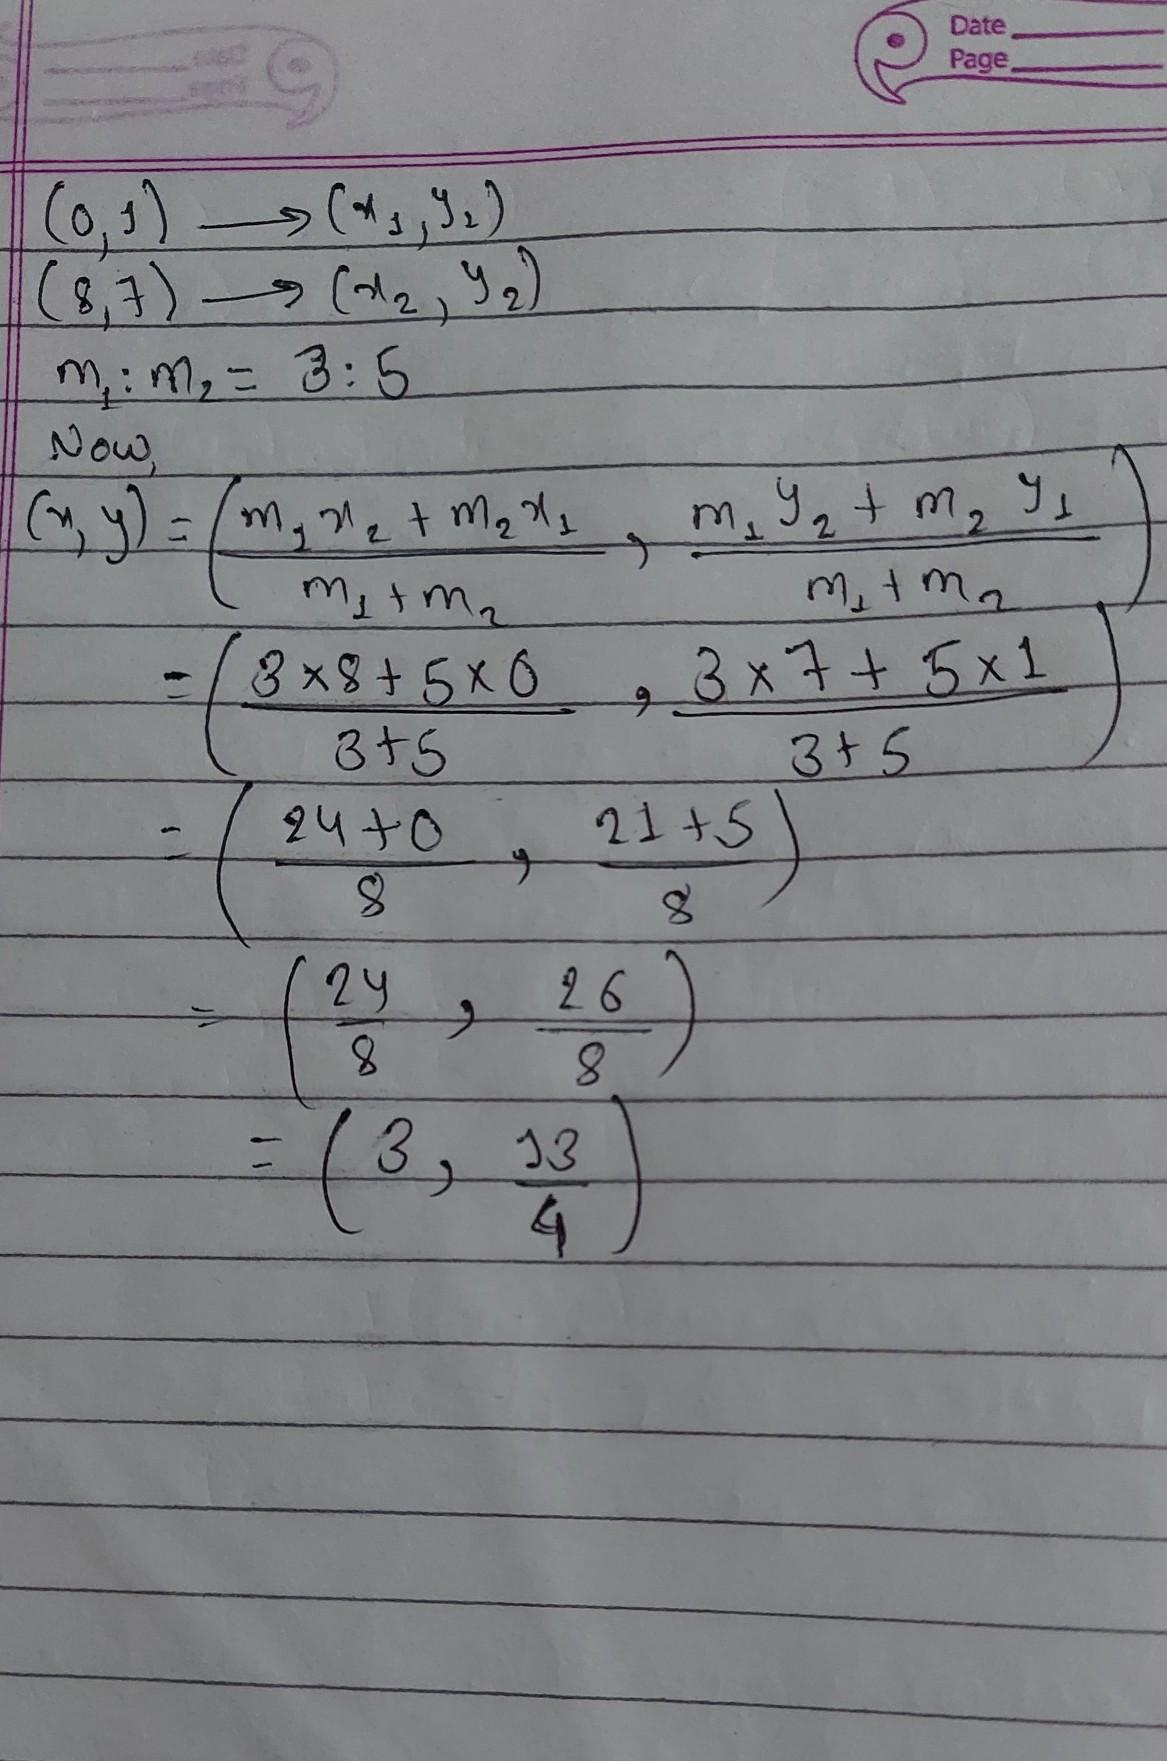 Date
Page
(0,1) → (x₁,y₂)
(8,7) → (x₂, y₂)
m₁:m₂ = 3:5
Now,
(x,y) = ( (m₁x₂ + m₂x₁)/(m₁+m₂) , (m₁y₂ + m₂y₁)/(m₁+m₂) )
= ( (3×8+5×0)/(3+5) , (3×7+5×1)/(3+5) )
= ( (24+0)/8 , (21+5)/8 )
= ( 24/8 , 26/8 )
= ( 3, 13/4 )